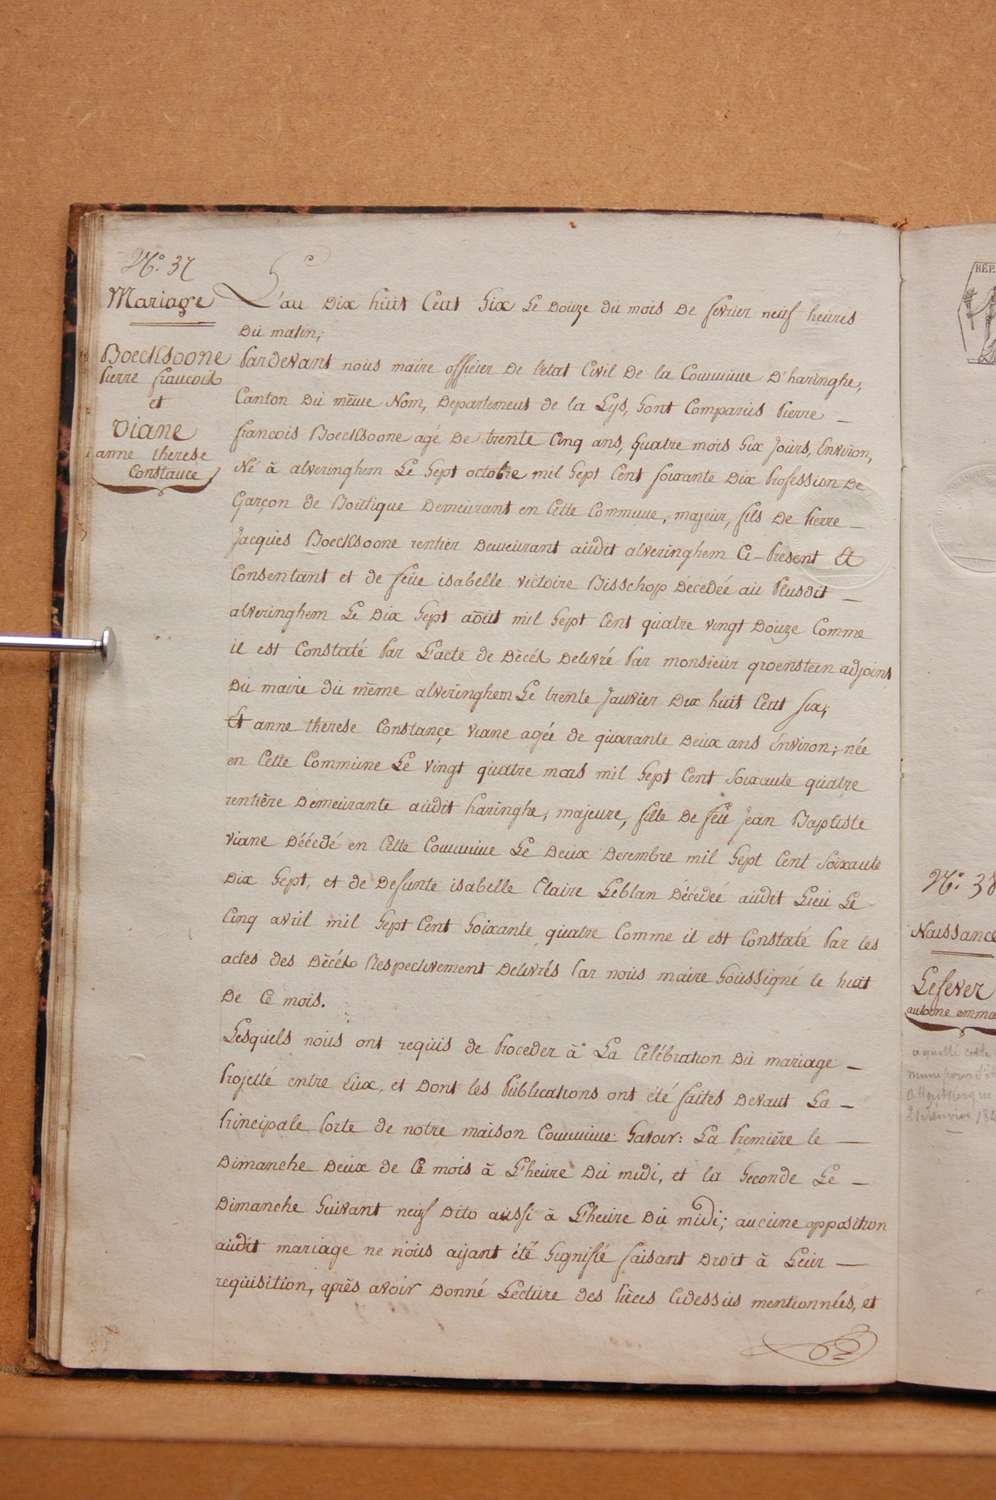 N.° 37
Mariage
Boecksoone
pierre francois
et
Viane
anne therese
Constance
L'an dix huit Cent Six Le Douze du mois de fevrier neuf heures
du matin,
Pardevant nous maire officier de letat Civil de la Commune D'haringhe,
Canton du même Nom, Departement de la Lys, Sont Comparus Pierre –
francois Boecksoone agé de trente Cinq ans, Quatre mois Six Jours, Environ,
Né à alveringhem Le Sept octobre mil Sept Cent soixante Dix Profession de
Garçon de Boutique Demeurant en Cette Commune, majeur, fils de Pierre –
Jacques Boecksoone rentier Demeurant audit alveringhem Ci-Present Et
Consentant et de feüe isabelle victoire Bisschop Décedée au Plusdit –
alveringhem Le Dix Sept août mil Sept Cent quatre vingt Douze Comme
il est Constaté Par L'acte de Décés Delivré Par monsieur groensteen adjoint
Du maire du même alveringhem Le trente Janvier Dix huit Cent six;
Et anne therese Constançe viane agée de quarante Deux ans Environ; née
en Cette Commune Le vingt quatre mars mil Sept Cent Soixante quatre
rentière Demeurante audit haringhe, majeure, fille de feü Jean Baptiste
viane Décédé en Cette Commune Le Deux Decembre mil Sept Cent Soixante
Dix Sept, et de Defunte isabelle Claire Leblan Décédée audit Lieu Le
Cinq avril mil Sept Cent Soixante quatre Comme il est Constaté Par les
actes des Décés Respectivement Delivrés Par nous maire Soussigné le huit
De Ce mois.
Lesquels nous ont requis de Proceder à La Célébration du mariage –
Projetté entre Eux, et Dont les Publications ont été faites Devant La –
Principale Porte de notre maison Commune: Savoir: La Première le —
Dimanche Deux de Ce mois à L'heure Du midi, et la Seconde Le –
Dimanche Suivant neuf Dito aussi à L'heure Du midi; aucune opposition
audit mariage ne nous ayant été Signifié faisant Droit à Leur —
requisition, après avoir Donné Lecture des Pièces Cidessus mentionnées, et
REP
N.° 38
Naissance
Lefever
antoine emma